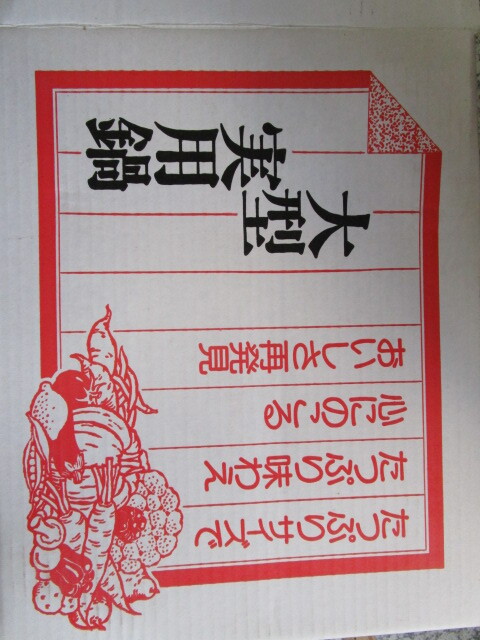 たっぷりサイズで
たっぷり味わえ
心にのこる
おいしさ再発見
大型
実用鍋